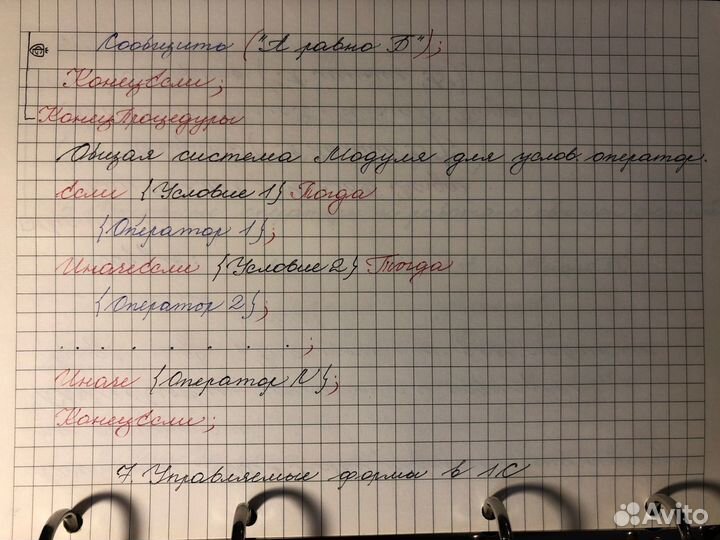 Сообщить ("А равно Б");
КонецЕсли;
КонецПроцедуры
Общая система Модуля для услов. оператор.
Если {Условие 1} Тогда
{Оператор 1};
ИначеЕсли {Условие 2} Тогда
{Оператор 2};
. . . . . . . . . ;
Иначе {Оператор N};
КонецЕсли;
7 Управляемые формы в 1С
Avito